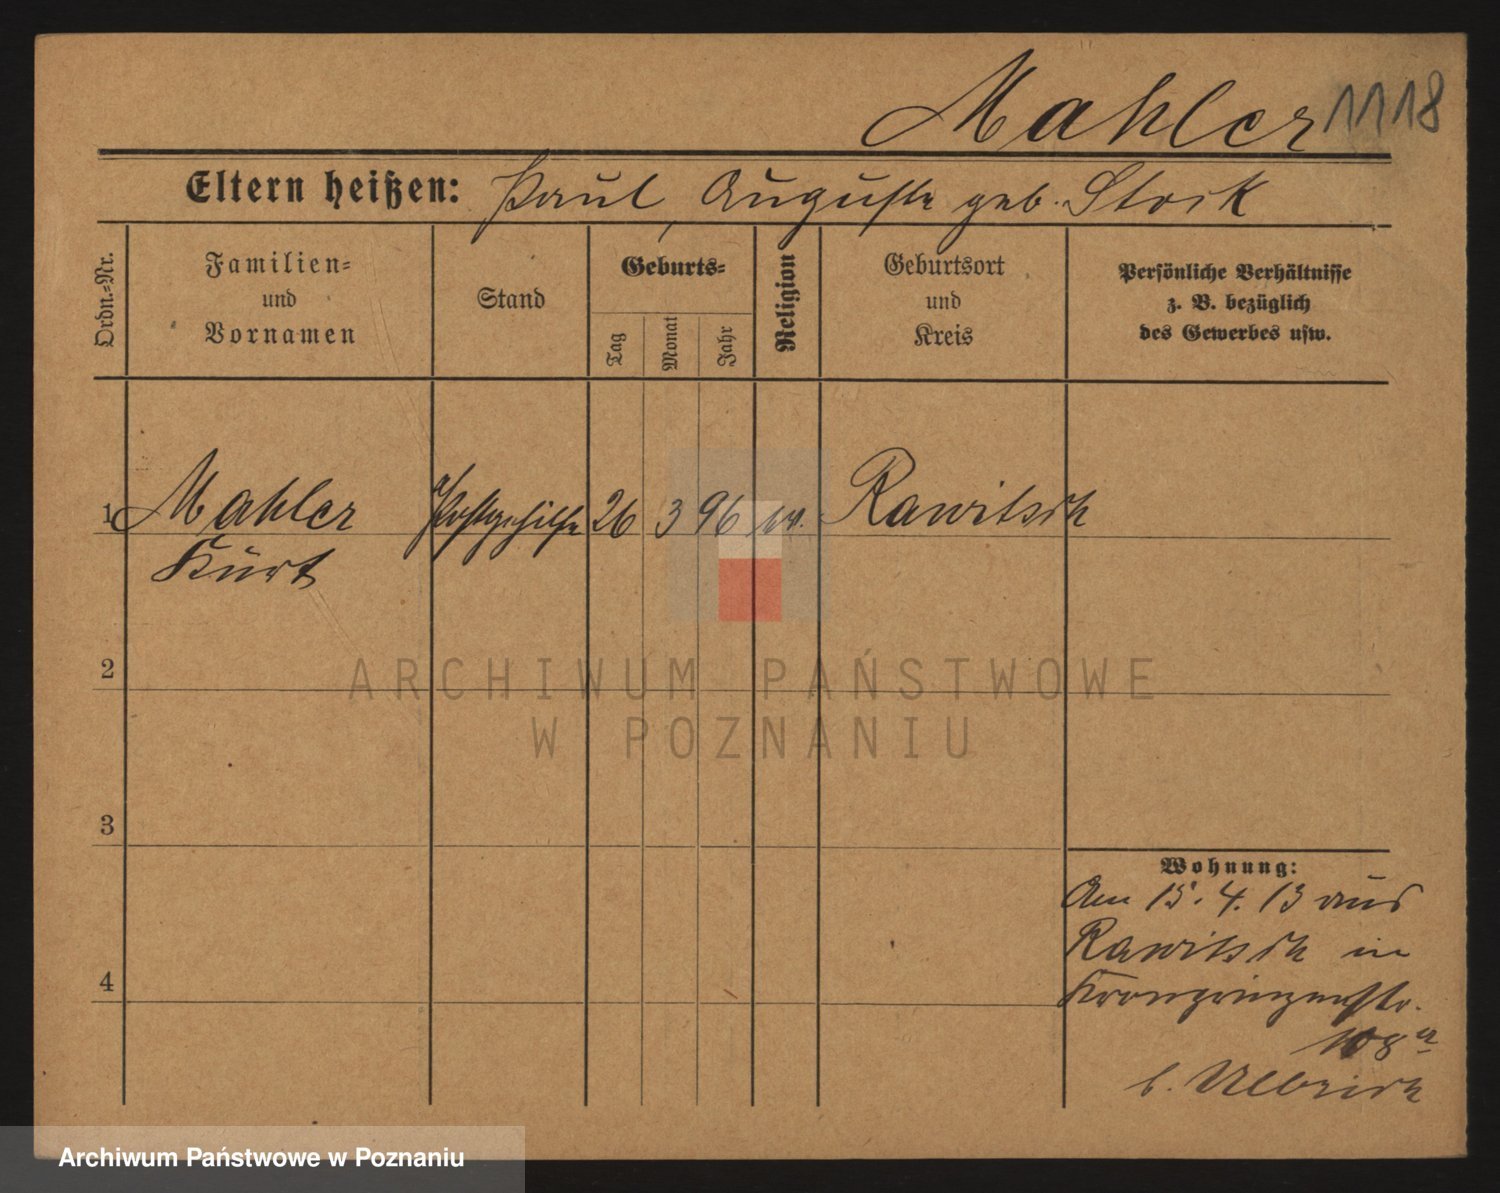 Mahler 1118
Eltern heißen: Paul, Auguste geb. Stock
Ordn.-Nr.
Familien-
und
Vornamen
Stand
Geburts-
Tag
Monat
Jahr
Religion
Geburtsort
und
Kreis
Persönliche Verhältnisse
z. B. bezüglich
des Gewerbes usw.
1 Mahler Postgehilfe 26 3 96 ev. Rawitsch
Kurt
2
3
4
Wohnung:
Am 15. 4. 13 aus
Rawitsch in
Kronprinzenstr.
108a
b. Ulbrich
ARCHIWUM PAŃSTWOWE
W POZNANIU
Archiwum Państwowe w Poznaniu